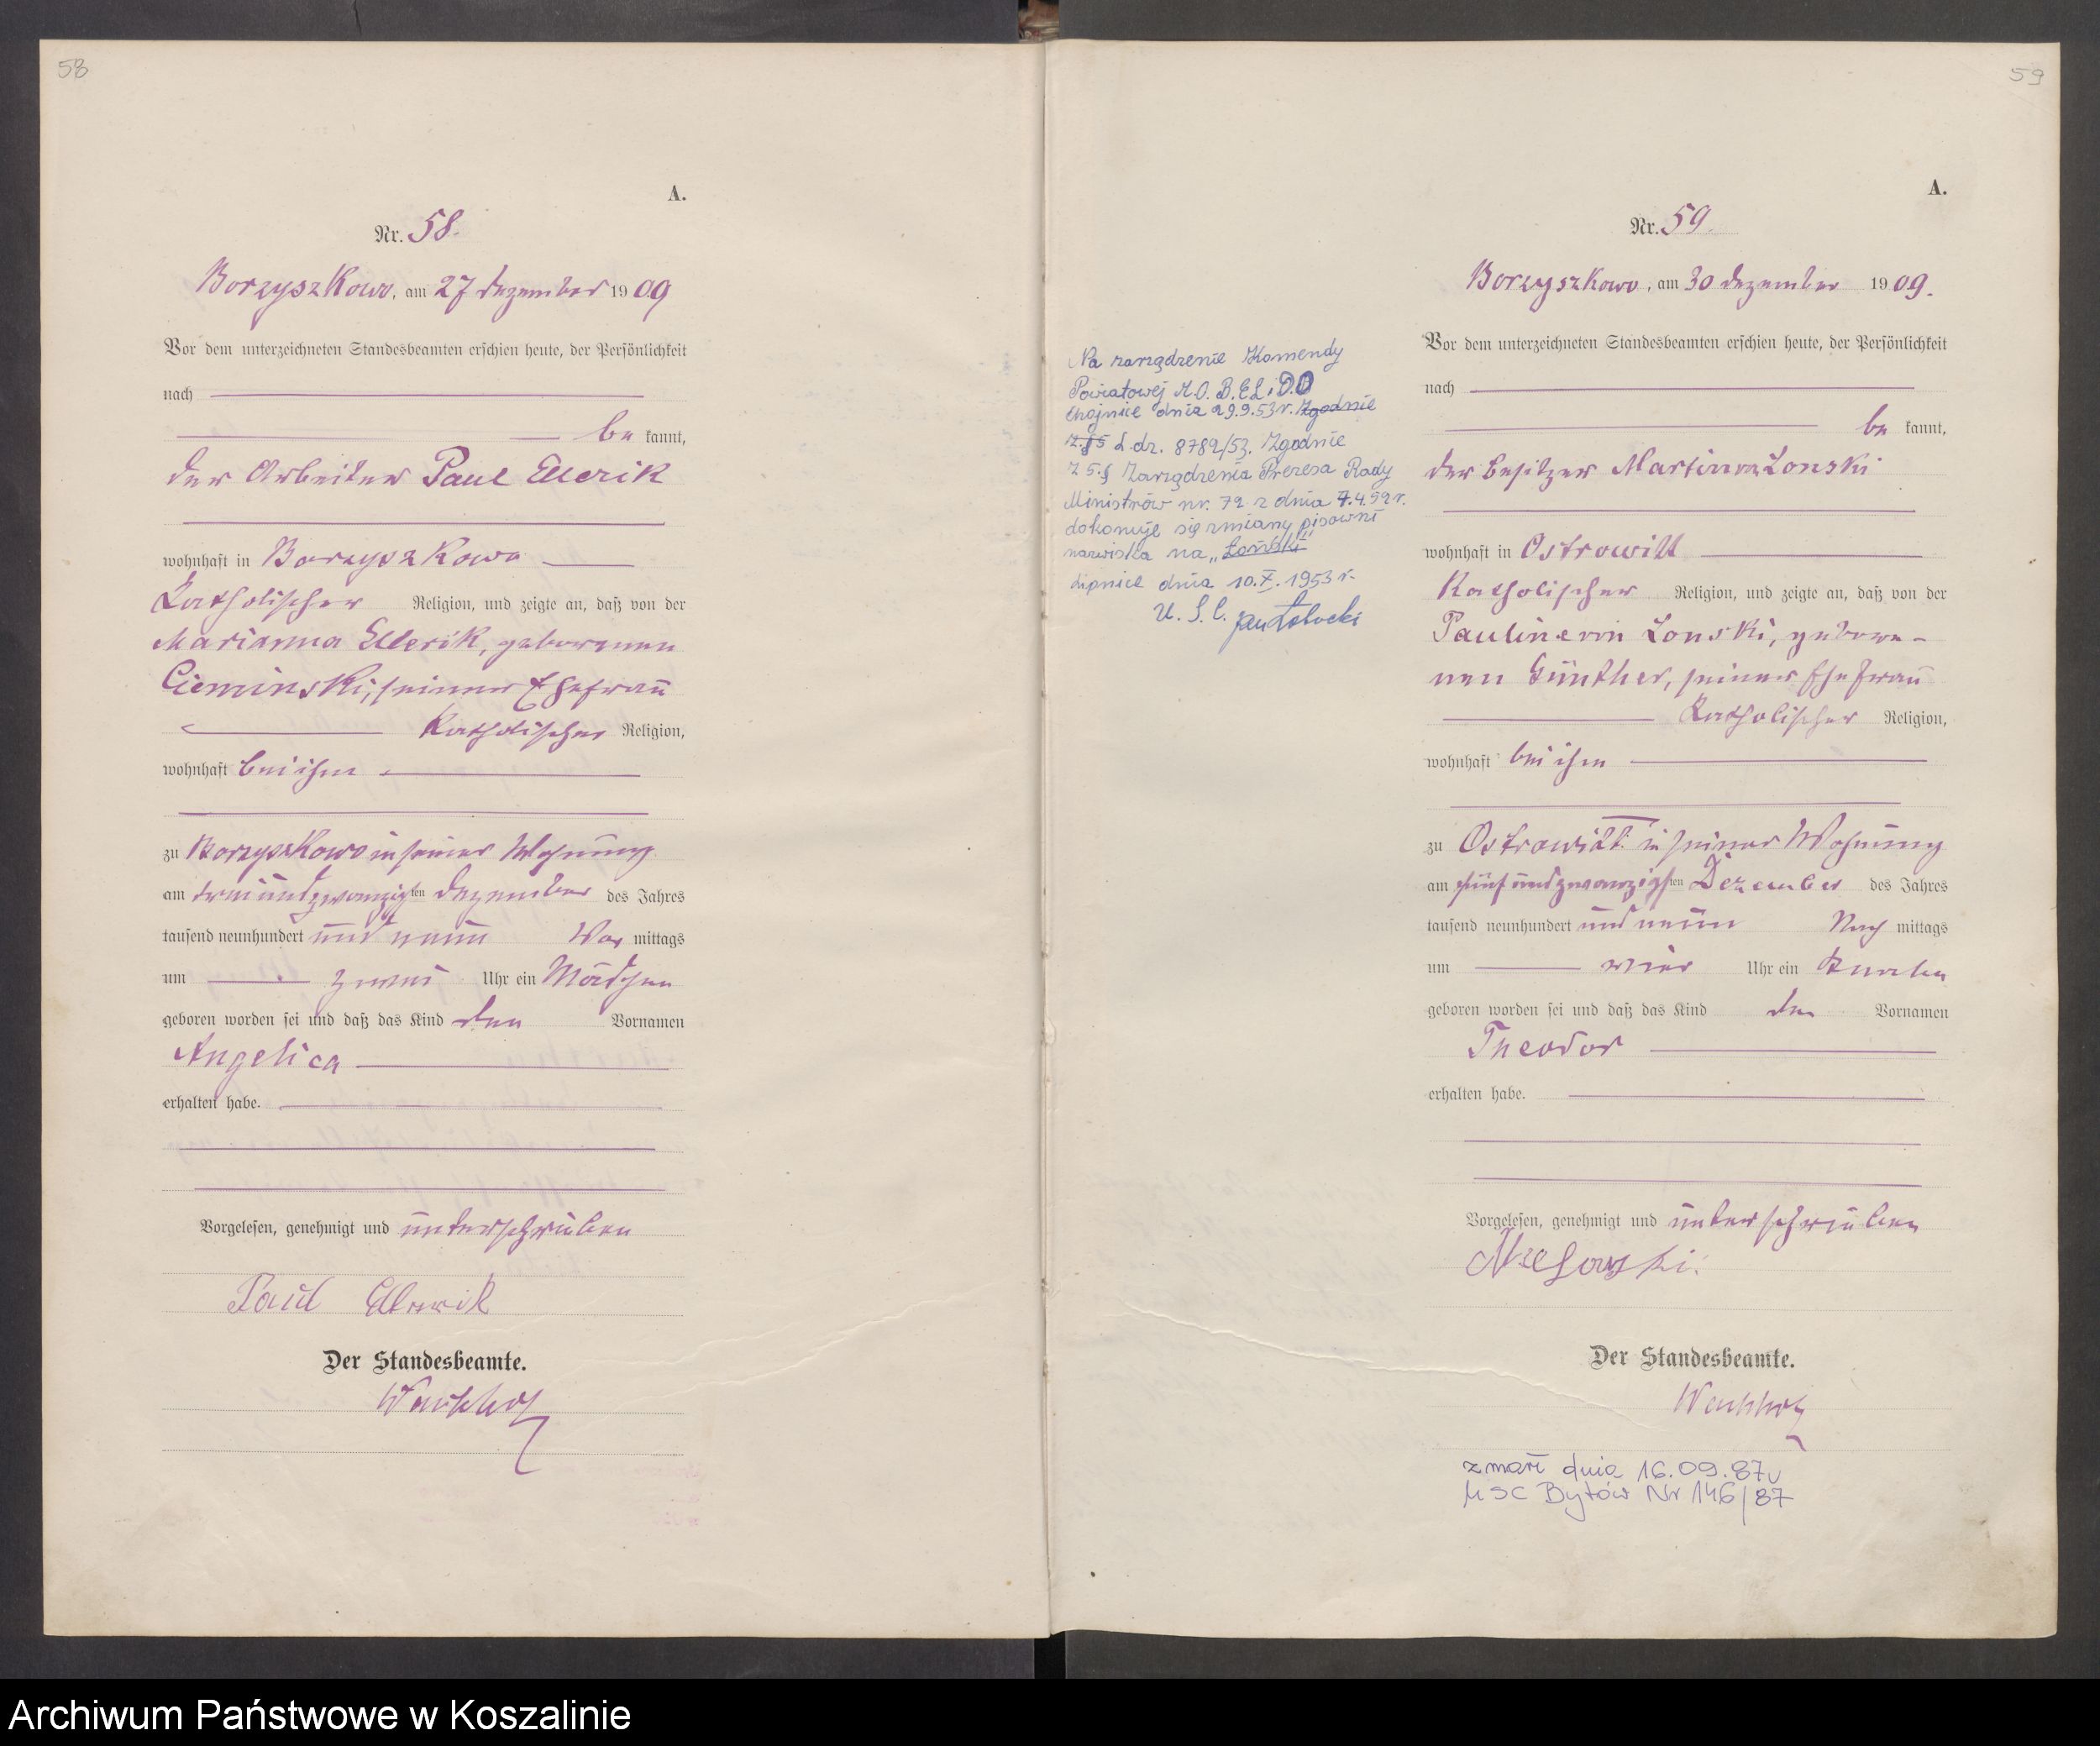 58
A.
Nr. 58.
Borzyszkowo, am 27 Dezember 1909
Vor dem unterzeichneten Standesbeamten erschien heute, der Persönlichkeit
nach
be kannt,
der Arbeiter Paul Ellerik
wohnhaft in Borzyszkowo
Katholischer Religion, und zeigte an, daß von der
Marianna Ellerik, geborenen
Cieminski, seiner Ehefrau
Katholischer Religion,
wohnhaft bei ihm
zu Borzyszkowo in seiner Wohnung
am dreiundzwanzigten Dezember des Jahres
tausend neunhundert und neun Vor mittags
um zwei Uhr ein Mädchen
geboren worden sei und daß das Kind den Vornamen
Angelica
erhalten habe.
Vorgelesen, genehmigt und unterschrieben
Paul Ellerik
Der Standesbeamte.
59
A.
Nr. 59.
Borzyszkowo, am 30 Dezember 1909.
Vor dem unterzeichneten Standesbeamten erschien heute, der Persönlichkeit
nach
be kannt,
der Besitzer Martin von Lonski
wohnhaft in Ostrowitt
Katholischer Religion, und zeigte an, daß von der
Pauline von Lonski, gebore-
nen Günther, seiner Ehefrau
Katholischer Religion,
wohnhaft bei ihm
zu Ostrowitt in seiner Wohnung
am fünfundzwanzigsten Dezember des Jahres
tausend neunhundert und neun Nach mittags
um vier Uhr ein Knabe
geboren worden sei und daß das Kind den Vornamen
Theodor
erhalten habe.
Vorgelesen, genehmigt und unterschrieben
Der Standesbeamte.
zmarł dnia 16.09.87r
USC Bytów Nr 146/87
Na zarządzenie Komendy
Powiatowej M.O. B.E.L. i D.O
Chojnice dnia 29.9.53r. Zgodnie
z §5 L.dz. 8782/53. Zgodnie
z 5.§ Zarządzenia Prezesa Rady
Ministrów nr. 72 z dnia 7.4.52r.
dokonuje się zmiany pisowni
nazwiska na „Łoński"
Lipnice dnia 10.X.1953r.
U. S. C.
Archiwum Państwowe w Koszalinie